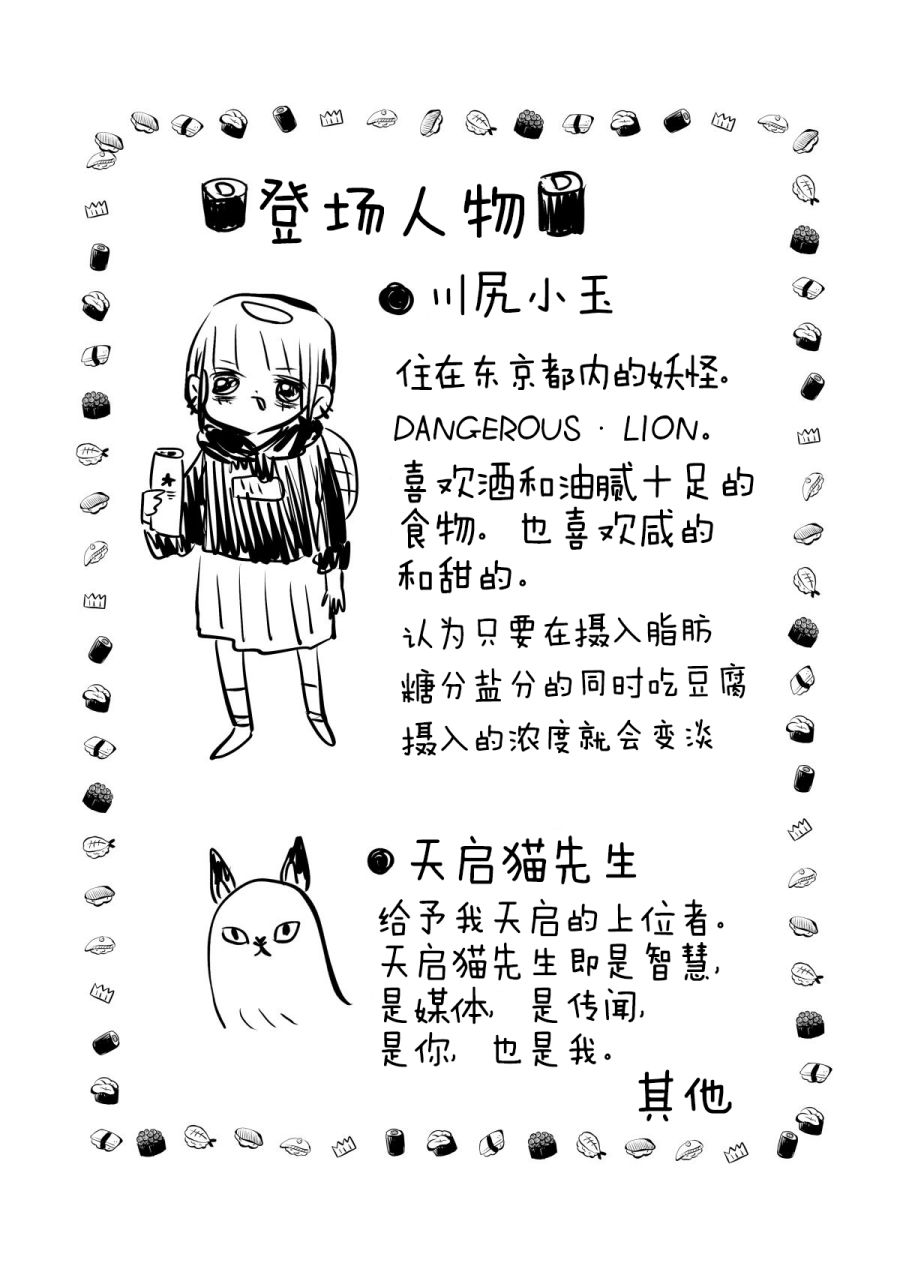 登场人物
川尻小玉
住在东京都内的妖怪。
DANGEROUS · LION。
喜欢酒和油腻十足的
食物。也喜欢咸的
和甜的。
认为只要在摄入脂肪
糖分盐分的同时吃豆腐
摄入的浓度就会变淡
天启猫先生
给予我天启的上位者。
天启猫先生即是智慧，
是媒体，是传闻，
是你，也是我。
其他